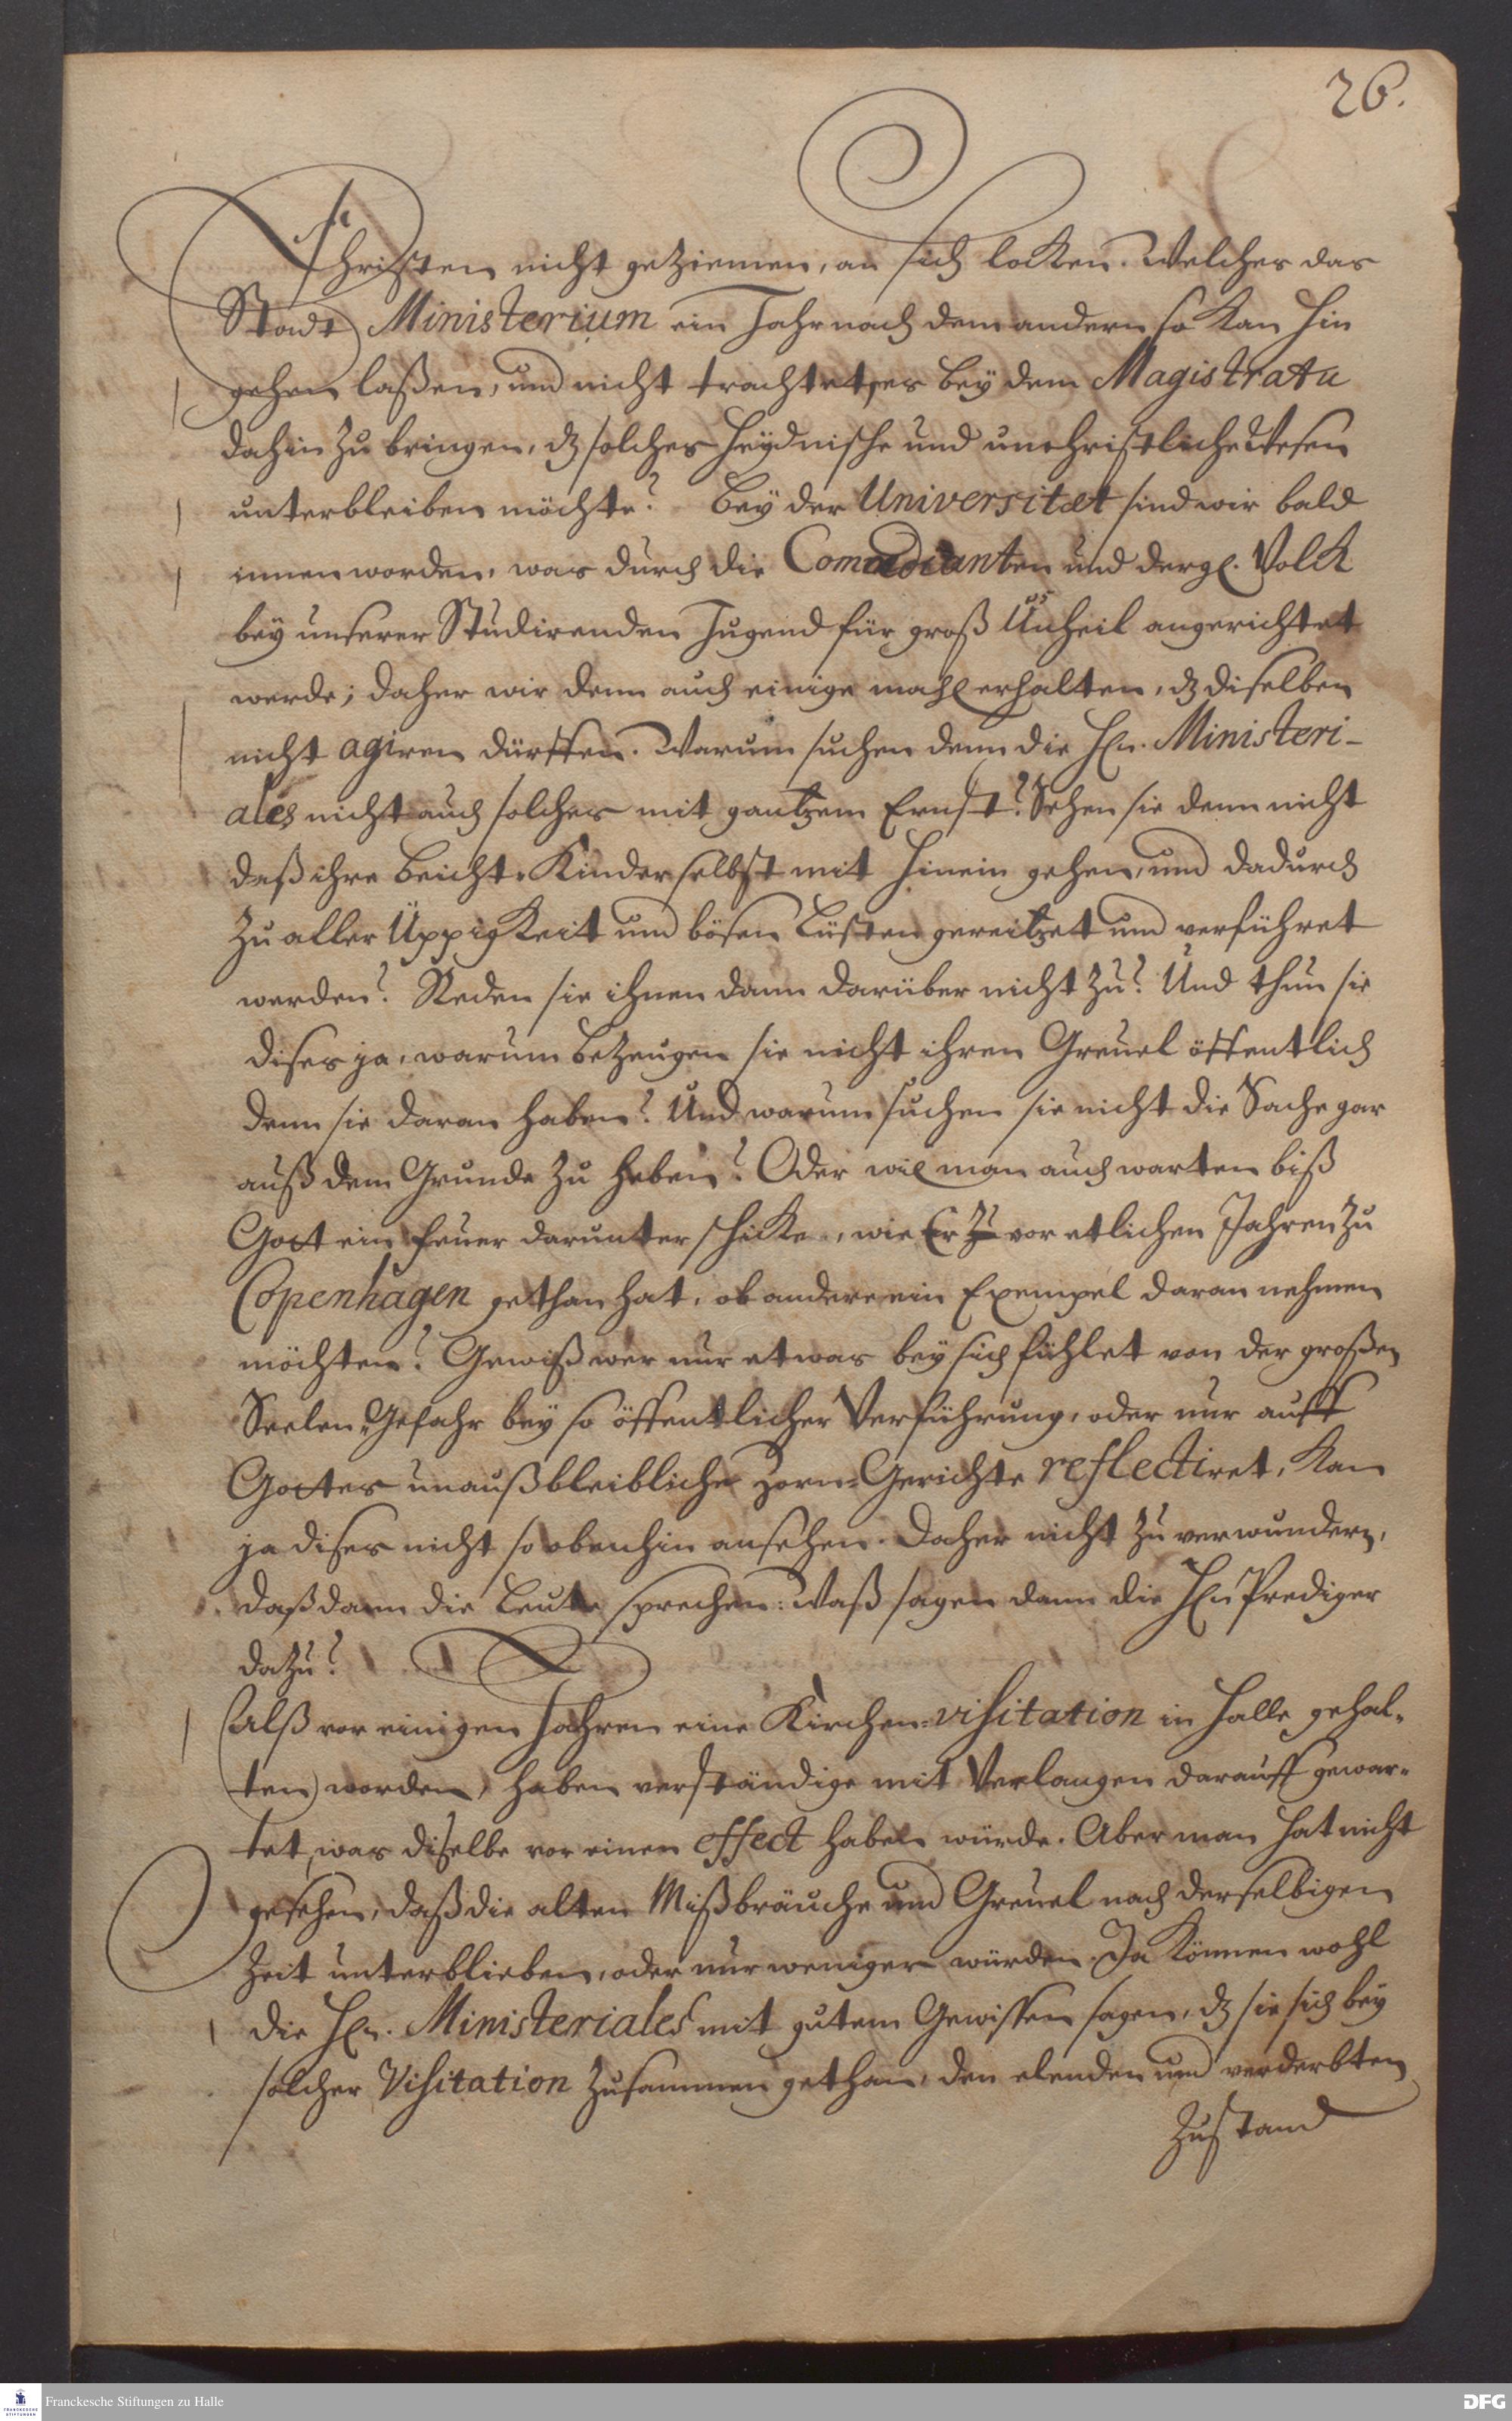 26.
Christen nicht geziemen, an sich locken. Welches das
Stadt Ministerium ein Jahr nach dem andern so kan hin
gehen laßen, und nicht trachtet, es bey dem Magistratu
dahin zu bringen, dz solches heydnische und unchristliche Wesen
unterbleiben möchte? Bey der Universitæt sind wir bald
innen worden, was durch die Comœdianten und dergl. Volck
bey unserer Studirenden Jugend für groß Unheil angerichtet
werde; daher wir denn auch einige mahl erhalten, dz diselben
nicht agiren dürffen. Warum suchen denn die Hln. Ministeri-
ales nicht auch solches mit gantzem Ernst? Sehen sie denn nicht
daß ihre Beicht-Kinder selbst mit hinein gehen, und dadurch
zu aller Üppigkeit und bösen Lüsten gereitzet und verführet
werden? Reden sie ihnen dann darüber nicht zu? Und thun sie
dises ja, warum bezeugen sie nicht ihren Greuel öffentlich
denn sie daran haben? Und warum suchen sie nicht die Sache gar
auß dem Grunde zu heben? Oder wil man auch warten biß
Gott ein Feuer darunter schicke, wie Er zu vor etlichen Jahren zu
Copenhagen gethan hat, ob andere ein Exempel daran nehmen
möchten? Gewiß wer nur etwas bey sich fühlet von der großen
Seelen-Gefahr bey so öffentlicher Verführung, oder nur auff
Gottes unaußbleibliche Zorn-Gerichte reflectiret, kan
ja dises nicht so obenhin ansehen. Daher nicht zu verwundern,
daß dann die Leute sprechen: Waß sagen dann die Hln Prediger
dazu?
Alß vor einigen Jahren eine Kirchen-visitation in Halle gehal-
ten worden, haben verständige mit Verlangen darauff gewar-
tet, was diselbe vor einen effect haben würde. Aber man hat nicht
gesehen, daß die alten Mißbräuche und Greuel nach derselbigen
Zeit unterblieben, oder nur weniger würden. Da können wohl
die Hln. Ministeriales mit gutem Gewissen sagen, dz sie sich bey
solcher Visitation zusammen gethan, den elenden und verderbten
Zustand
Franckesche Stiftungen zu Halle
DFG